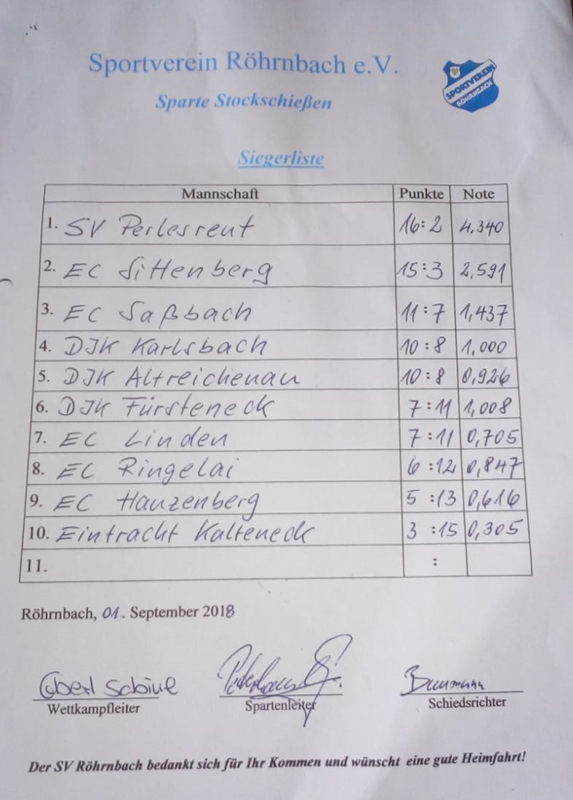 Sportverein Röhrnbach e.V.
SPORTVEREIN
RÖHRNBACH
Sparte Stockschießen
Siegerliste
Mannschaft Punkte Note
1. SV Perlesreut 16:2 4.340
2. EC Sittenberg 15:3 2,591
3. EC Saßbach 11:7 1,437
4. DJK Karlsbach 10:8 1,000
5. DJK Altreichenau 10:8 0,926
6. DJK Fürsteneck 7:11 1,008
7. EC Linden 7:11 0,705
8. EC Ringelai 6:12 0,847
9. EC Hauzenberg 5:13 0,616
10. Eintracht Kalteneck 3:15 0,305
11. :
Röhrnbach, 01. September 2018
Sabine
Baumann
Wettkampfleiter Spartenleiter Schiedsrichter
Der SV Röhrnbach bedankt sich für Ihr Kommen und wünscht eine gute Heimfahrt!